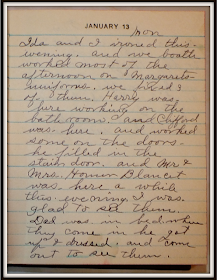 JANUARY 13
Mon
Ida and I ironed this
evening. and we both
worked most of the
afternoon on Margarets
uniforms. we fixed 3
of them. Harry was
here working on the
bath room. and Clifford
was here. and worked
some on the doors.
he filled in the
stair door. and Mr &
Mrs. Homer Blancet
was here a while
this evening. I was
glad to see them.
Dad was in bed when
they come in he got
up & dressed. and come
out to see them.